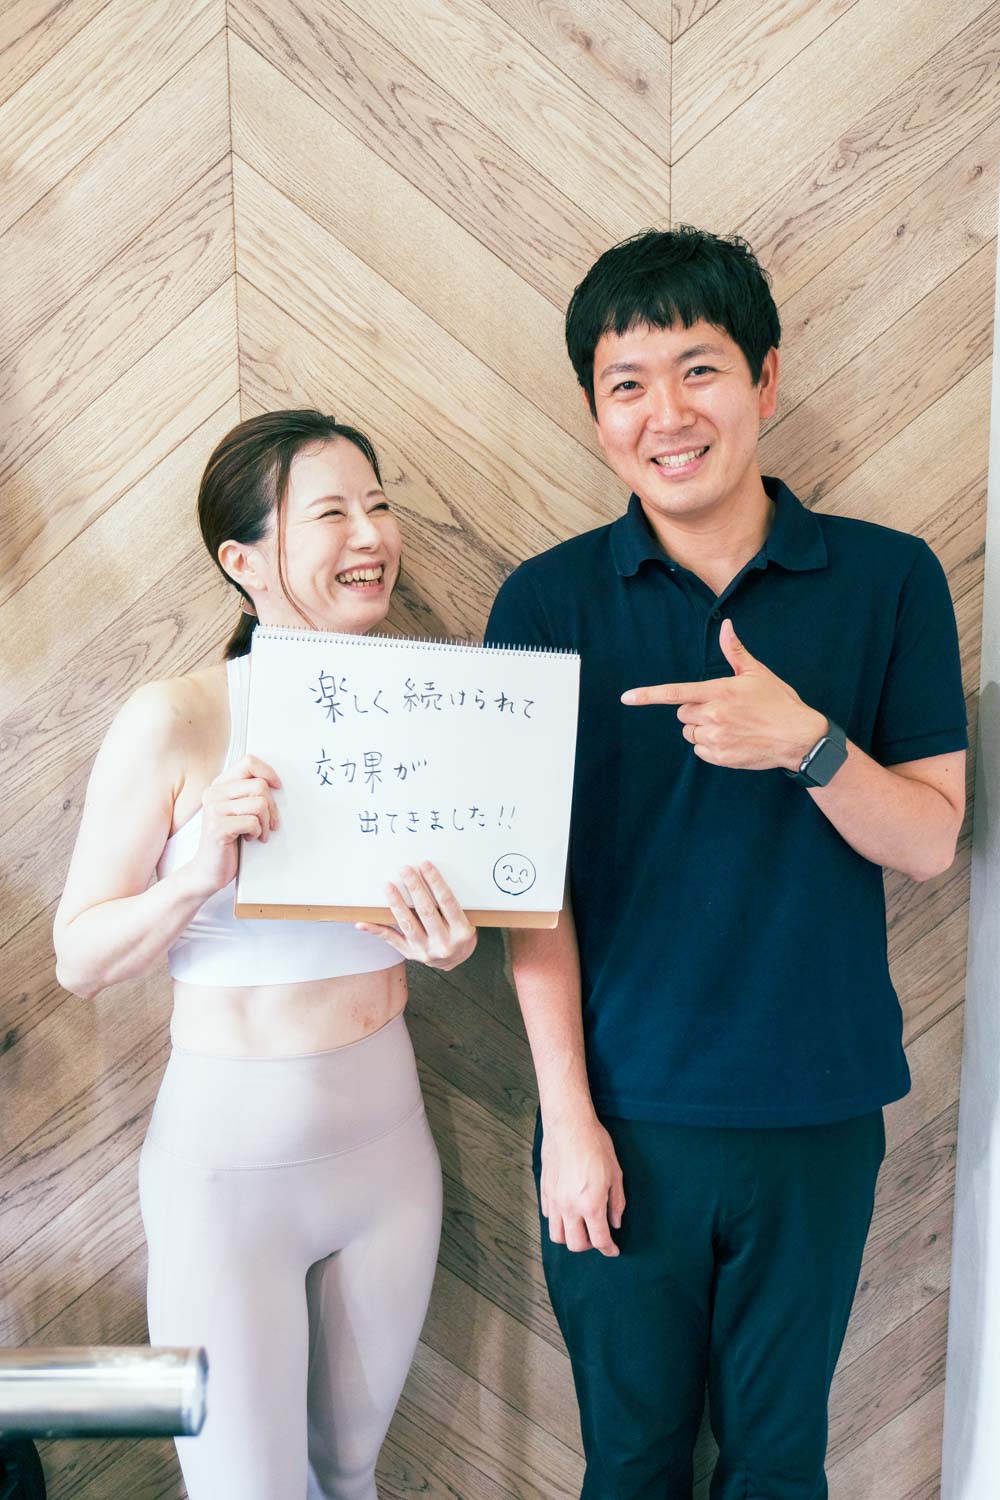 楽しく続けられて
効果が
出てきました!!